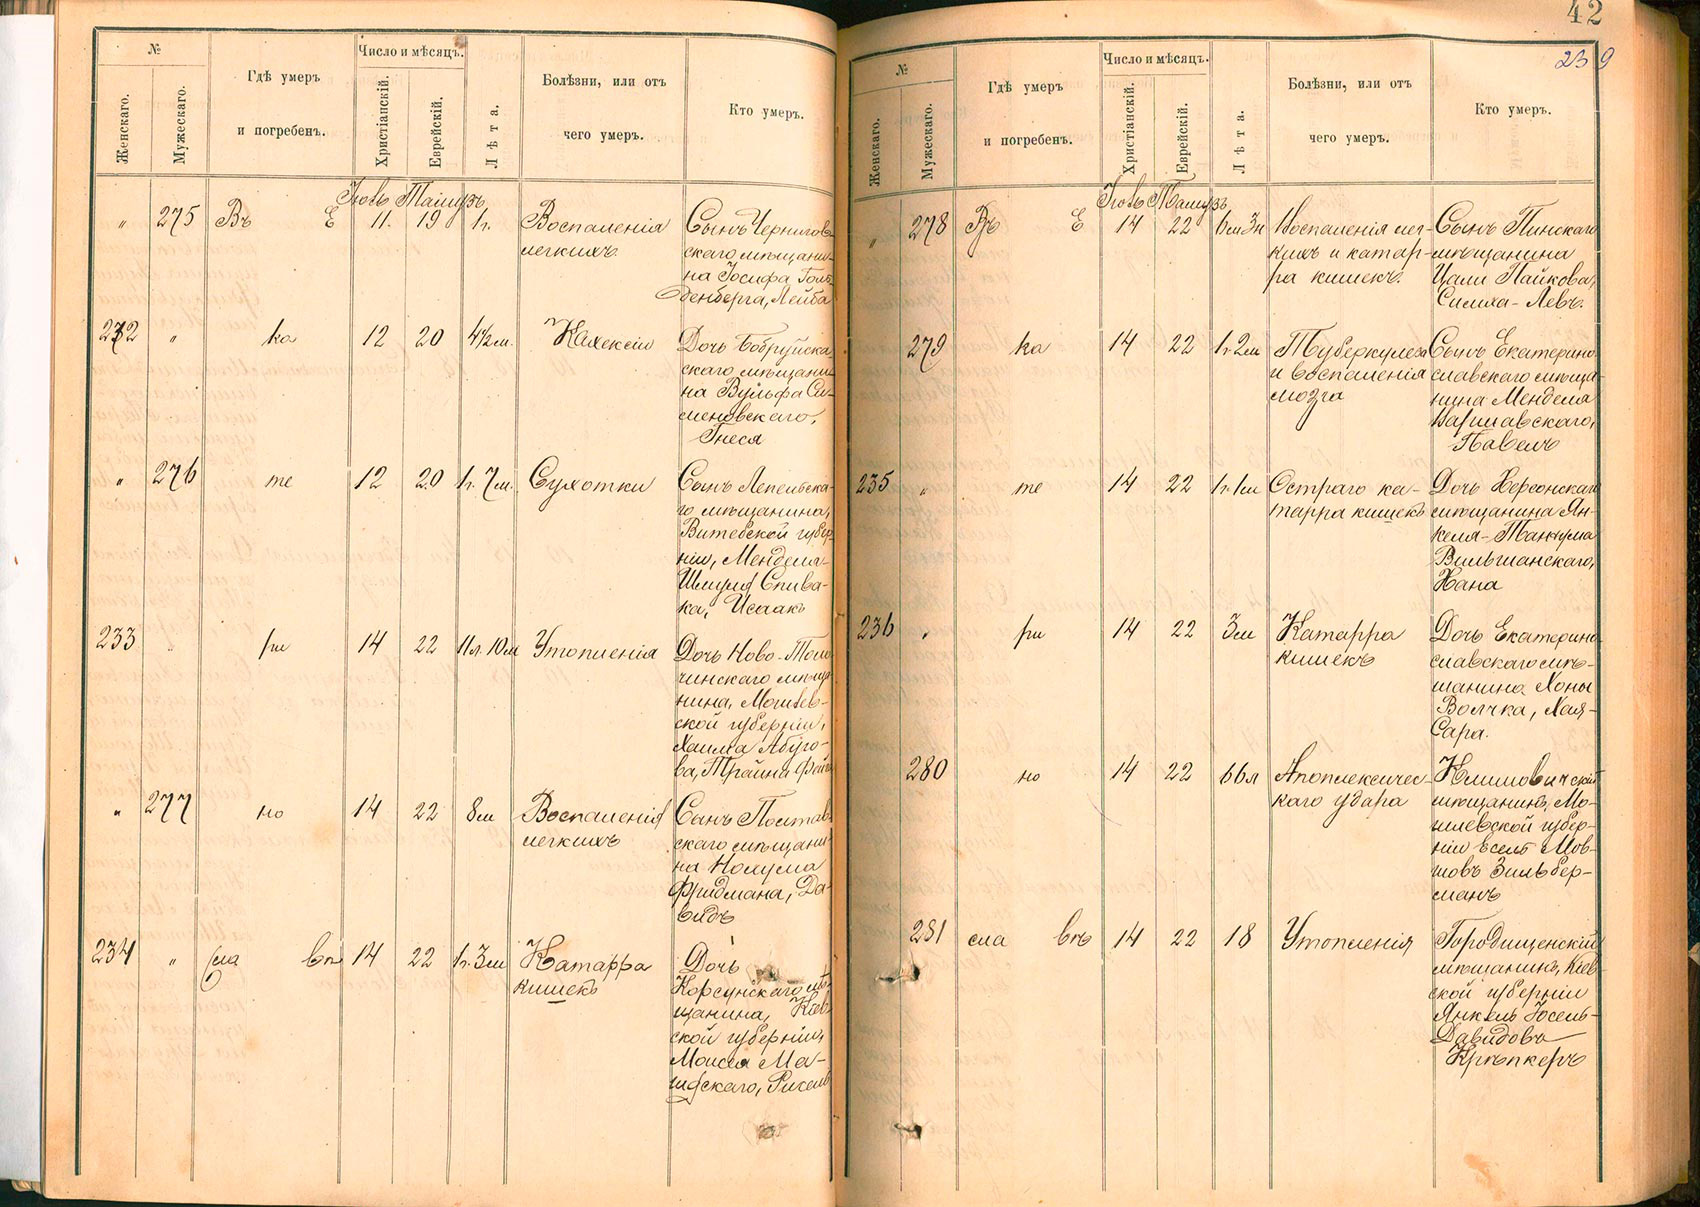 42
239
№
Женскаго.
Мужескаго.
Гдѣ умеръ
и погребенъ.
Число и мѣсяцъ.
Христіанскій.
Еврейскій.
Лѣта.
Болѣзни, или отъ
чего умеръ.
Кто умеръ.
Іюль Тамузъ
„ 275 Въ Е 11. 19 1г.
Воспаленія
легкихъ
Сынъ Чернигов-
скаго мѣщани-
на Іосифа Голь-
денберга, Лейба
232 „ ка 12 20 4½м.
Кахексіи
Дочь Бобруйска
скаго мѣщани-
на Вульфа Си-
меновскаго,
Гнеся
„ 276 те 12 20 1г. 7м.
Сухотки
Сынъ Лепельска-
го мѣщанина,
Витебской губер-
ніи, Менделя-
Шмуля Спива-
ка, Исаакъ
233 ри 14 22 11л. 10м
Утопленія
Дочь Ново-
чинскаго мѣща
нина, Могилев-
ской губерніи,
Хаима Абуго-
ва, Трайна Фай
„ 277 но 14 22 8м
Воспаленія
легкихъ
Сынъ Полтав-
скаго мѣщани-
на Нохума
Фридмана, Да-
видъ
234 „ сла вѣ 14 22 1г. 3м
Катарра
кишекъ
Дочь
Корсунскаго мѣ
щанина, Кіев-
ской губерніи,
Моисея Ма-
скаго, Рихель
№
Женскаго.
Мужескаго.
Гдѣ умеръ
и погребенъ.
Число и мѣсяцъ.
Христіанскій.
Еврейскій.
Лѣта.
Болѣзни, или отъ
чего умеръ.
Кто умеръ.
Іюль Тамузъ
„ 278 Въ Е 14 22 6м 3н
Воспаленія лег-
кихъ и катар-
ра кишекъ.
Сынъ Пинскаго
мѣщанина
Цали Пайкова,
Симха-Левъ.
279 ка 14 22 1г 2м
Туберкулеза
и воспаленія
мозга
Сынъ Екатерино
славскаго мѣща-
нина Менделя
Варшавскаго,
Павелъ
235 „ те 14 22 1г. 1м
Остраго ка-
тарра кишекъ
Дочь Херсонскаго
мѣщанина Ян-
келя-Танхума
Вильшанскаго,
Хана
236 „ ри 14 22 3м
Катарра
кишекъ
Дочь Екатерино
славскаго мѣ-
щанина Хоны
Волчка, Хая-
Сара.
280 но 14 22 66л
Апоплексичес-
каго удара
Климовичскій
мѣщанинъ, Мо-
гилевской губер-
ніи Есель Мов-
шовъ Зильбер-
манъ
281 сла вѣ 14 22 18
Утопленія
Городищенскій
мѣщанинъ, Кіев-
ской губерніи
Янкель Іосель-
Давидовъ
Крѣпкеръ